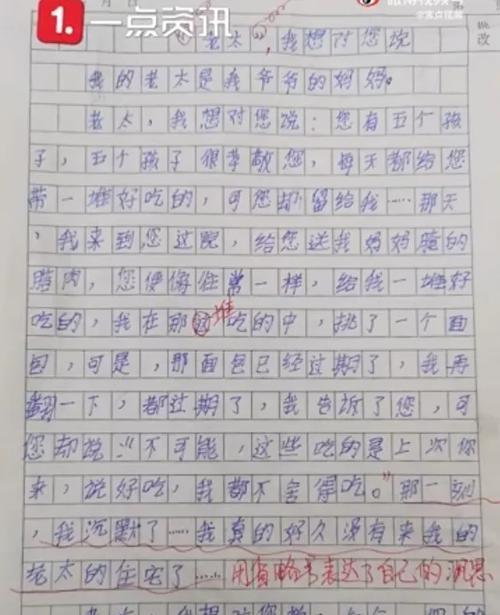 1. 一点资讯
月 日
批改
老太，我想对您说
我的老太是我爷爷的妈妈。
老太，我想对您说：您有五个孩
子，五个孩子很孝敬您，每天都给您
带一堆好吃的，可您却留给我……那天
，我来到您这院，给您送我妈妈腌的
腊肉，您便像往常一样，给我一堆好
吃的，我在那堆吃的中，挑了一个面
包，可是，那面包已经过期了，我再
翻一下，都过期了，我告诉了您，可
您却说：“不可能，这些吃的是上次你
来，说好吃，我都不舍得吃。”那一刻
，我沉默了……我真的好久没有来我的
老太的住宅了……用省略号表达了自己的沉思